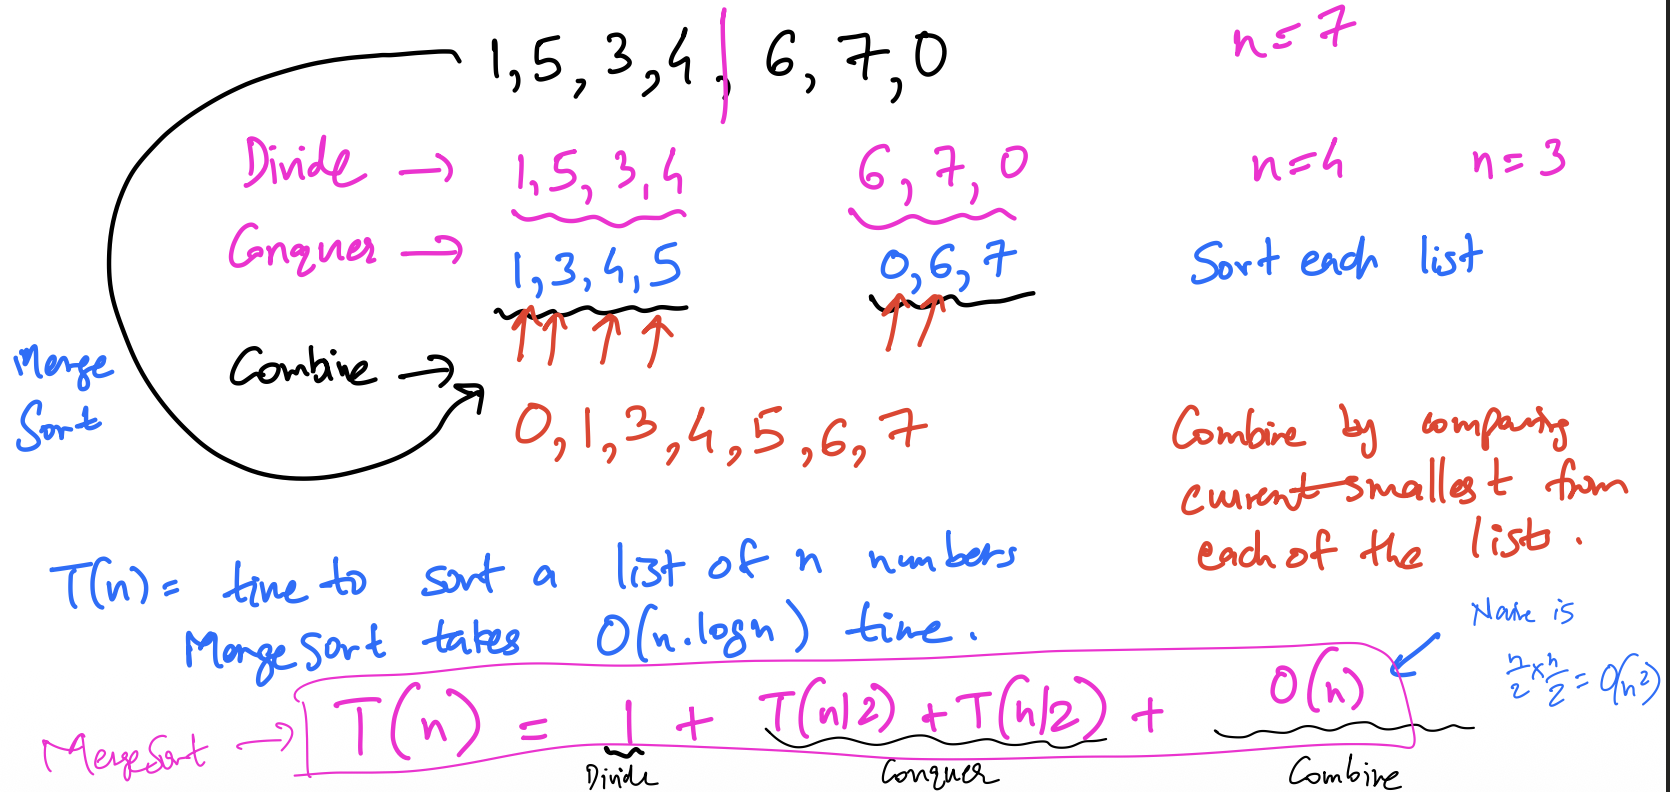 1, 5, 3, 4, 6, 7, 0
n = 7
Divide → 1, 5, 3, 4 6, 7, 0
n = 4 n = 3
Conquer → 1, 3, 4, 5 0, 6, 7
Sort each list
Merge
Sort
Combine →
0, 1, 3, 4, 5, 6, 7
Combine by comparing
current smallest from
each of the lists.
T(n) = time to sort a list of n numbers
Merge Sort takes O(n.logn) time.
Naive is
n/2 × n/2 = O(n²)
MergeSort → T(n) = 1 + T(n/2) + T(n/2) + O(n)
Divide Conquer Combine